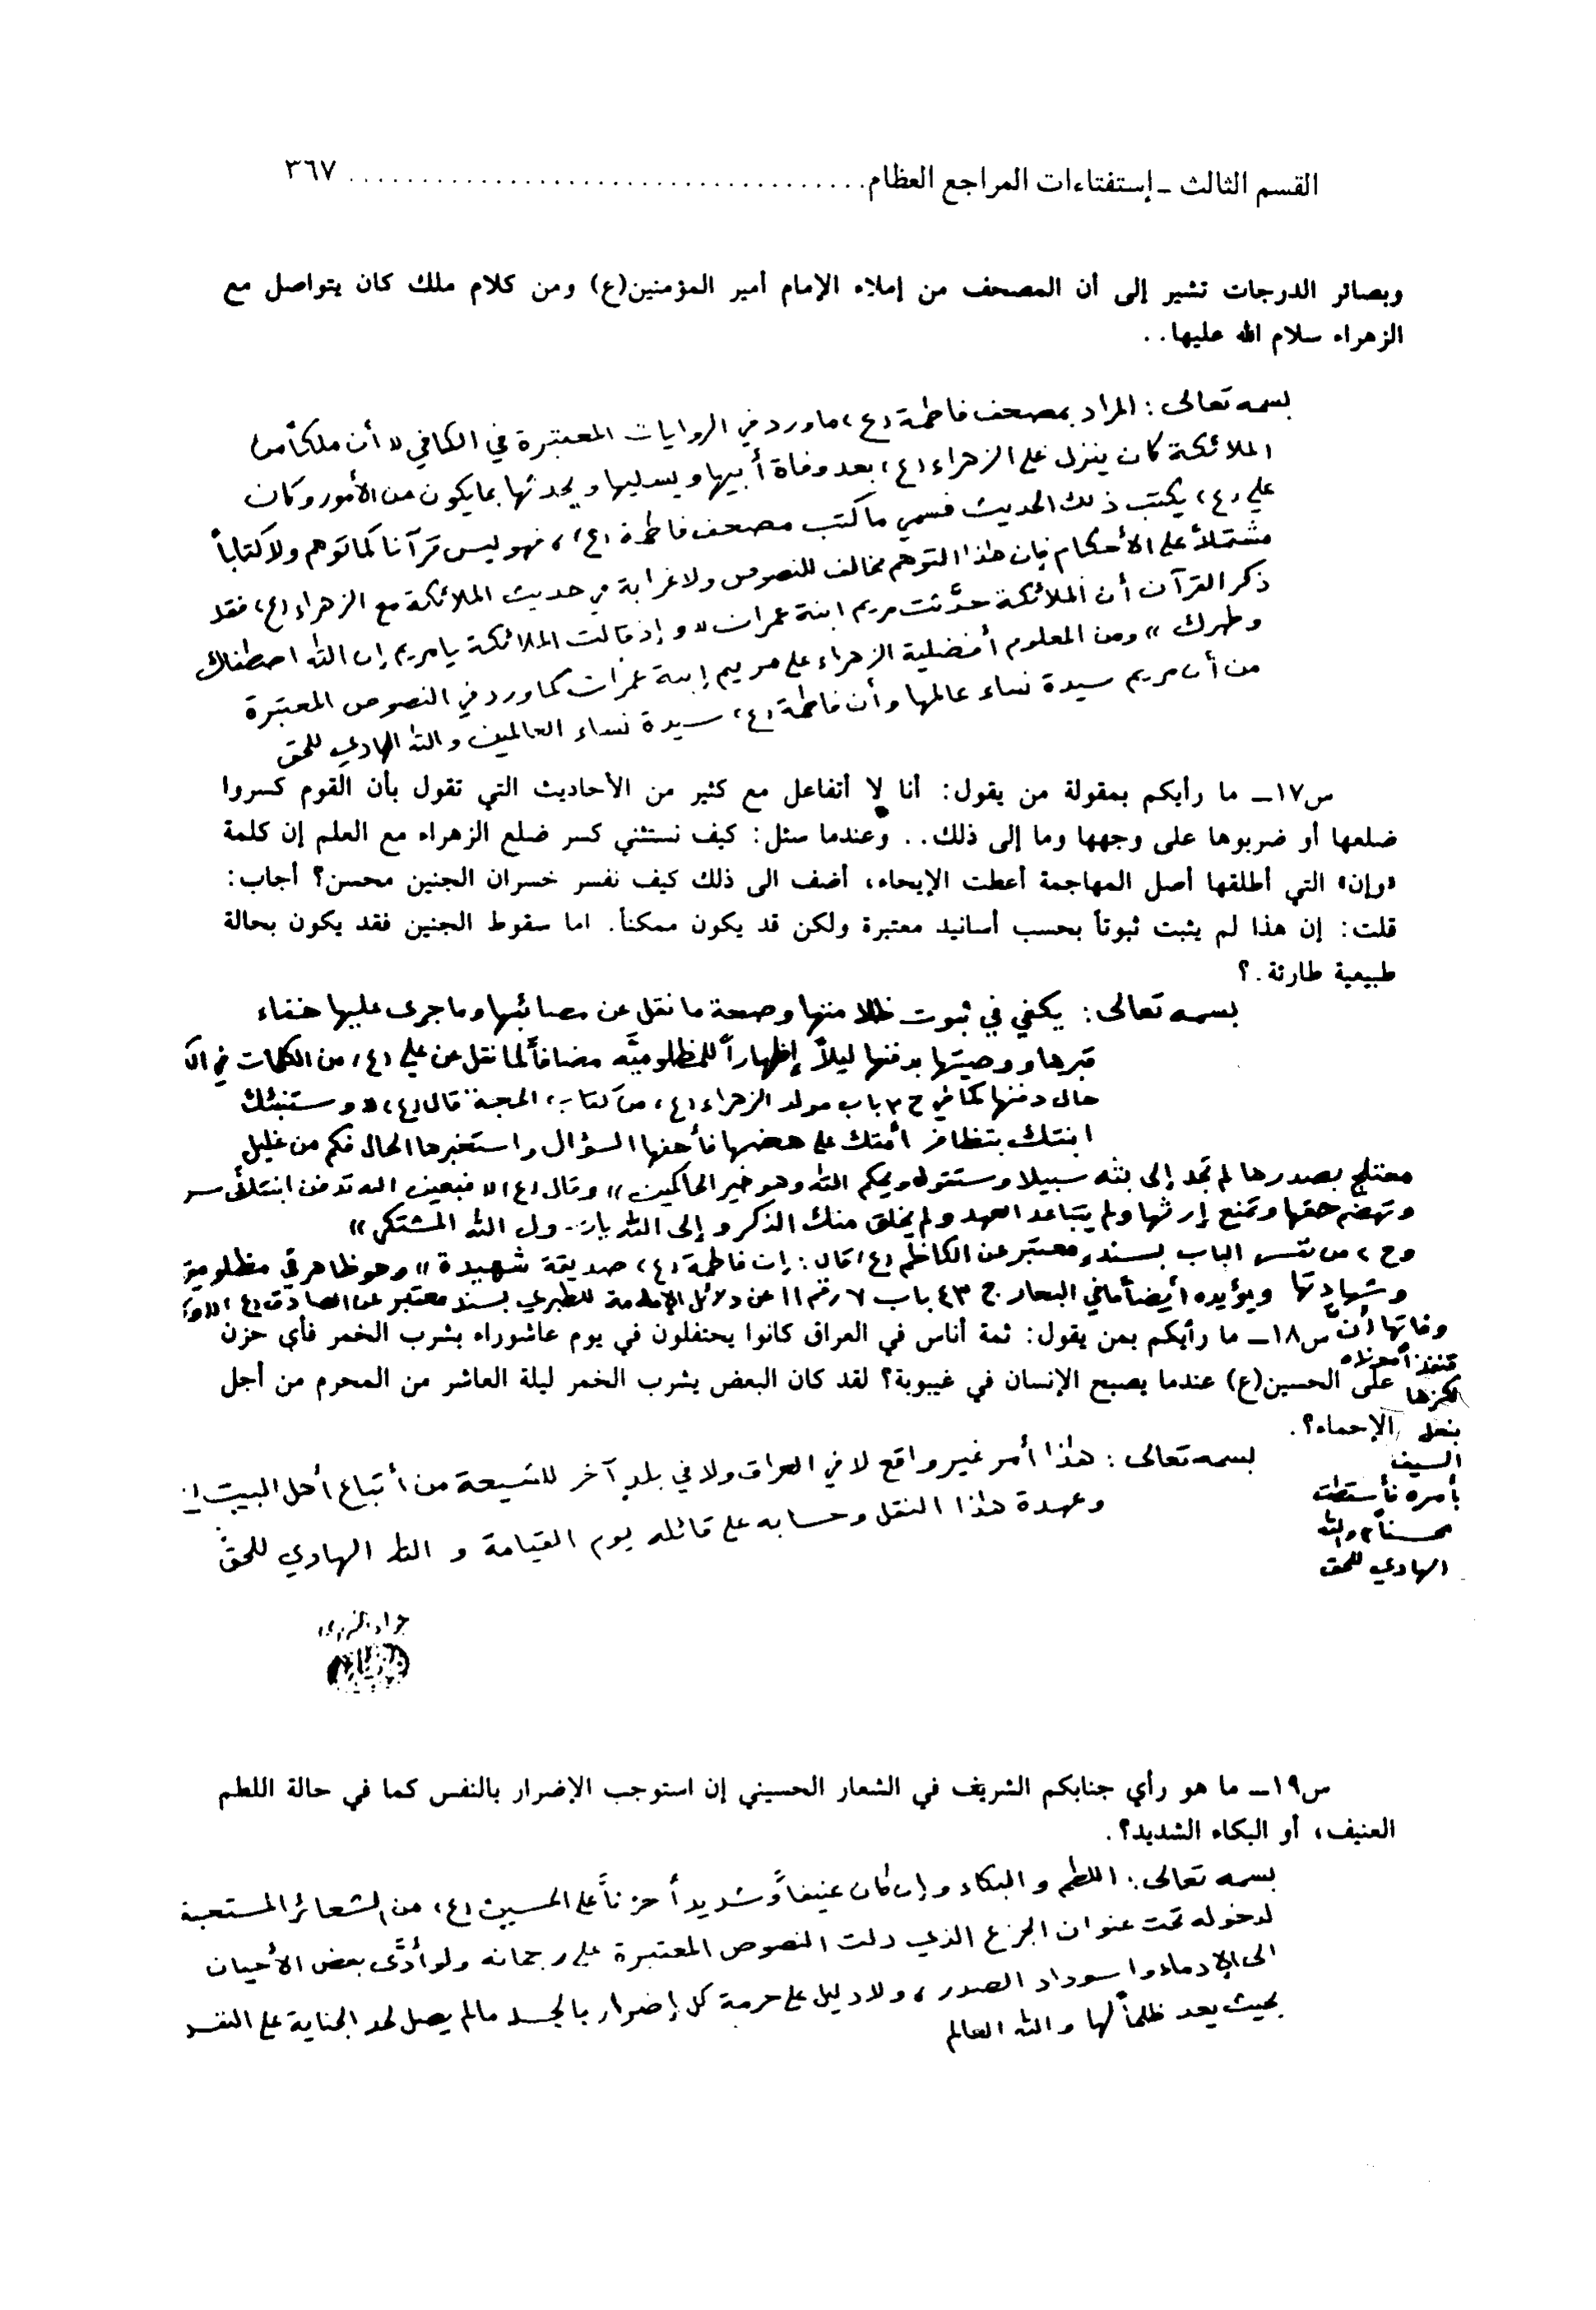 القسم الثالث ـ إستفتاءات المراجع العظام .................................... ٣٦٧
وبصائر الدرجات تشير إلى أن المصحف من إملاء الإمام أمير المؤمنين(ع) ومن كلام ملك كان يتواصل مع
الزهراء سلام الله عليها..
بسمه تعالى: المراد بمصحف فاطمة (ع) ما ورد في الروايات المعتبرة في الكافي «أن ملكاً من
الملائكة كان ينزل على الزهراء (ع) بعد وفاة أبيها ويسليها ويحدثها بما يكون من الأمور وكان
علي (ع) يكتب ذلك الحديث فسمي ما كتب مصحف فاطمة (ع)، فهو ليس قرآنا كما توهم ولا كتاباً
مشتملاً على الأحكام فإن هذا التوهم مخالف للنصوص ولا غرابة في حديث الملائكة مع الزهراء (ع) فقد
ذكر القرآن أن الملائكة حدّثت مريم ابنة عمران «وإذ قالت الملائكة يا مريم إن الله اصطفاك
وطهرك» ومن المعلوم أفضلية الزهراء على مريم إبنة عمران كما ورد في النصوص المعتبرة
من أن مريم سيدة نساء عالمها وأن فاطمة (ع) سيدة نساء العالمين والله الهادي للحق
س١٧ـ ما رأيكم بمقولة من يقول: أنا لا أتفاعل مع كثير من الأحاديث التي تقول بأن القوم كسروا
ضلعها أو ضربوها على وجهها وما إلى ذلك.. وعندما سئل: كيف نستثني كسر ضلع الزهراء مع العلم إن كلمة
«وإن» التي أطلقها أصل المهاجمة أعطت الإيحاء، أضف الى ذلك كيف نفسر خسران الجنين محسن؟ أجاب:
قلت: إن هذا لم يثبت ثبوتاً بحسب أسانيد معتبرة ولكن قد يكون ممكناً. اما سقوط الجنين فقد يكون بحالة
طبيعية طارئة.؟
بسمه تعالى: يكفي في ثبوت ظلامتها وصحة ما نقل عن مصائبها وما جرى عليها خفاء
قبرها ووصيتها بدفنها ليلاً إظهاراً للمظلوميته مضافاً لما نقل عن علي (ع) من الكلمات في
حال دفنها كما في ح ٣ باب مولد الزهراء (ع) من كتاب الحجة قال (ع) «وستنبئك
ابنتك بتظافر أمتك على هضمها فأحفها السؤال واستخبرها الحال فكم من غليل
معتلج بصدرها لم تجد إلى بثه سبيلا وستقول ويحكم الله وهو خير الحاكمين» وقال (ع) «فبعين الله تدفن ابنتك سر
وتهضم حقها وتمنع إرثها ولم يتباعد العهد ولم يخلق منك الذكر وإلى الله يا رسول الله المشتكى»
وح ٢ من نفس الباب بسند معتبر عن الكاظم (ع) قال: إن فاطمة (ع) صديقة شهيدة» وهو ظاهر في مظلوميتها
وشهادتها ويؤيده أيضاً ما في البحار ج ٤٣ باب ٧ رقم ١١ عن دلائل الإمامة للطبري بسند معتبر عن الصادق (ع)
وفاتها أنّ
س١٨ـ ما رأيكم بمن يقول: ثمة أناس في العراق كانوا يحتفلون في يوم عاشوراء بشرب الخمر فأي حزن
قنفذاً مولاه
على الحسين(ع) عندما يصبع الإنسان في غيبوبة؟ لقد كان البعض يشرب الخمر ليلة العاشر من المحرم من أجل
لكزها
الإحماء؟.
بنعل
السيف
بأمره فأسقطت
محسناً والله
الهادي للحق
بسمه تعالى: هذا أمر غير واقع لا في العراق ولا في بلدٍ آخر للشيعة من أتباع أهل البيت
وعهدة هذا النقل وحسابه على قائله يوم القيامة والله الهادي للحق
س١٩ـ ما هو رأي جنابكم الشريف في الشعار الحسيني إن استوجب الإضرار بالنفس كما في حالة اللطم
العنيف، أو البكاء الشديد؟.
بسمه تعالى: اللطم والبكاء وإن كان عنيفاً وشديداً حزناً على الحسين (ع) من الشعائر المستحبة
لدخوله تحت عنوان الجزع الذي دلت النصوص المعتبرة على رجحانه ولو أدّى بعض الأحيان
الى الإدماء واسوداد الصدر، ولا دليل على حرمة كل إضرار بالجسد مالم يصل لحد الجناية على النفس
بحيث يعد ظلماً لها والله العالم